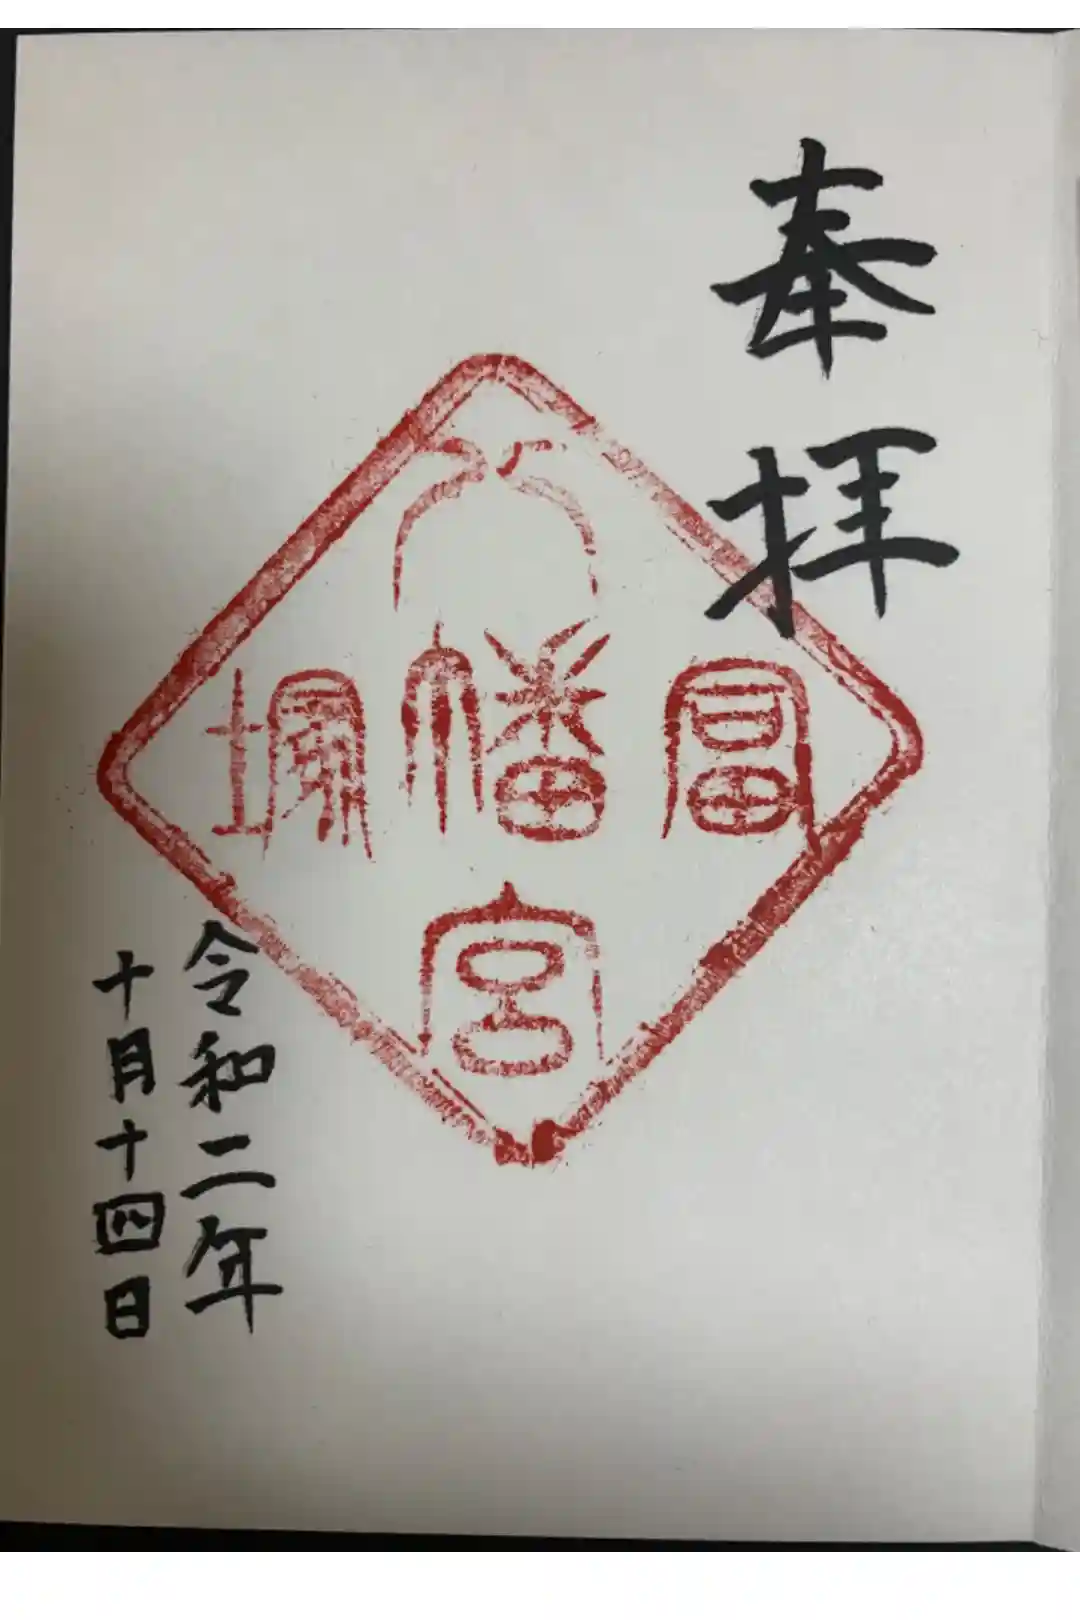 奉拝
冨塚
八幡宮
令和二年
十月十四日